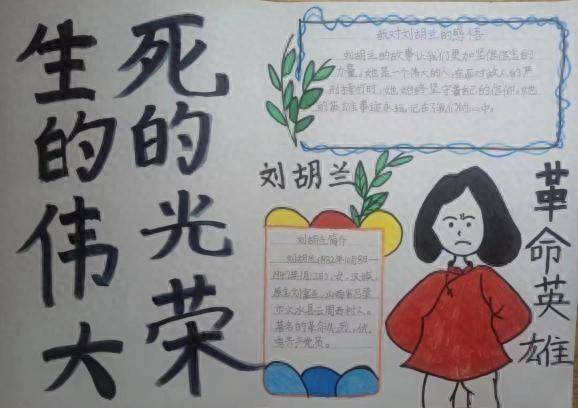 生的伟大
死的光荣
我对刘胡兰的感悟
刘胡兰的故事让我们更加坚信信念的
力量,她是一个伟大的人,在面对敌人的严
刑拷打时,她始终坚守着自己的信仰,她
的英雄事迹永远记在了我们的心中。
刘胡兰
刘胡兰简介
刘胡兰,1932年10月8日—
1947年1月12日),女,汉族
原名刘富兰,山西省吕梁
市文水县云周西村人。
著名的革命先烈,优
秀共产党员。
革命英雄